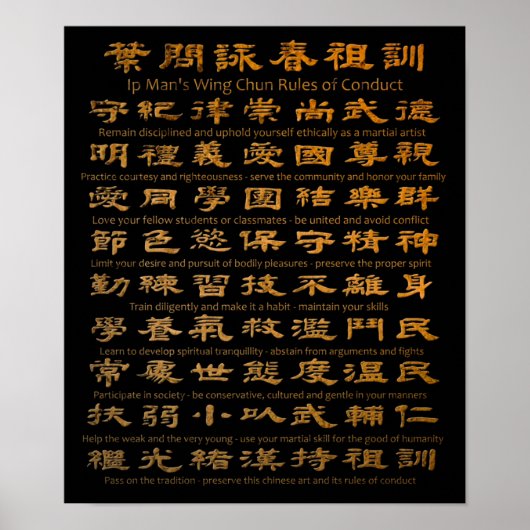 葉問詠春祖訓
Ip Man's Wing Chun Rules of Conduct
守紀律崇尚武德
Remain disciplined and uphold yourself ethically as a martial artist
明禮義愛國尊親
Practice courtesy and righteousness - serve the community and honor your family
愛同學團結樂群
Love your fellow students or classmates - be united and avoid conflict
節色慾保守精神
Limit your desire and pursuit of bodily pleasures - preserve the proper spirit
勤練習技不離身
Train diligently and make it a habit - maintain your skills
學養氣救濫鬥民
Learn to develop spiritual tranquillity - abstain from arguments and fights
常處世態度溫民
Participate in society - be conservative, cultured and gentle in your manners
扶弱小以武輔仁
Help the weak and the very young - use your martial skill for the good of humanity
繼光緒漢持祖訓
Pass on the tradition - preserve this chinese art and its rules of conduct